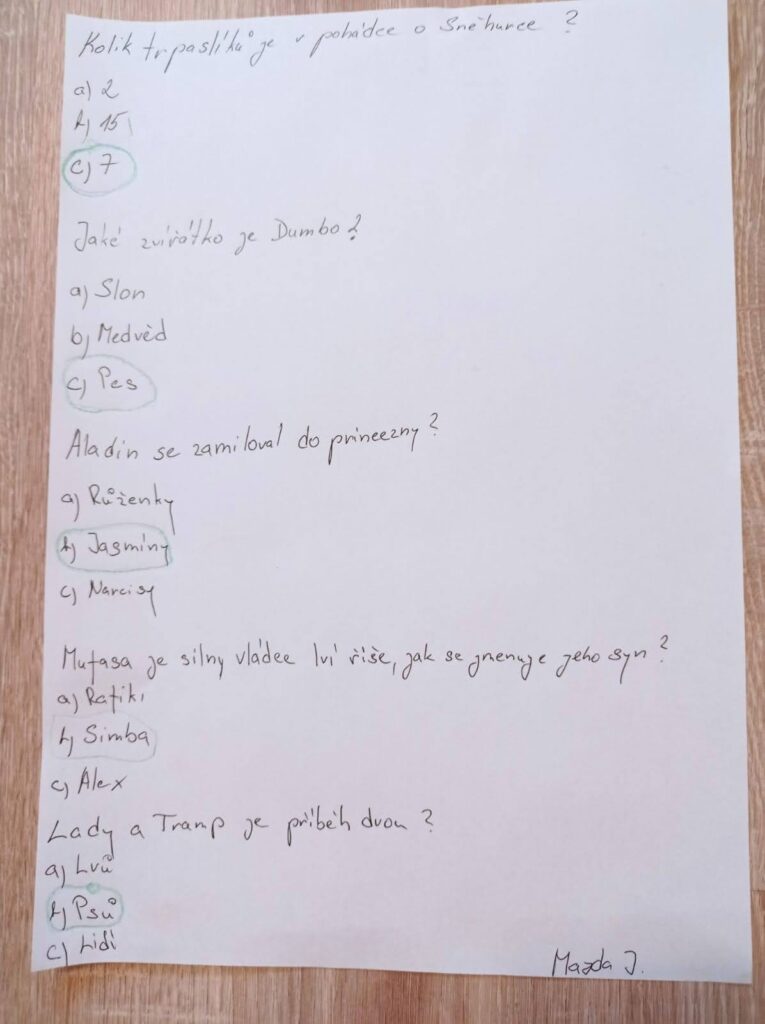 Kolik trpaslíků je v pohádce o Sněhurce ?
a) 2
b) 15
c) 7
Jaké zvířátko je Dumbo ?
a) Slon
b) Medvěd
c) Pes
Aladin se zamiloval do princezny ?
a) Růženky
b) Jasmíny
c) Narcisy
Mufasa je silny vládce lví říše, jak se jmenuje jeho syn ?
a) Rafiki
b) Simba
c) Alex
Lady a Tramp je příběh dvou ?
a) Lvů
b) Psů
c) Lidí
Mazda J.